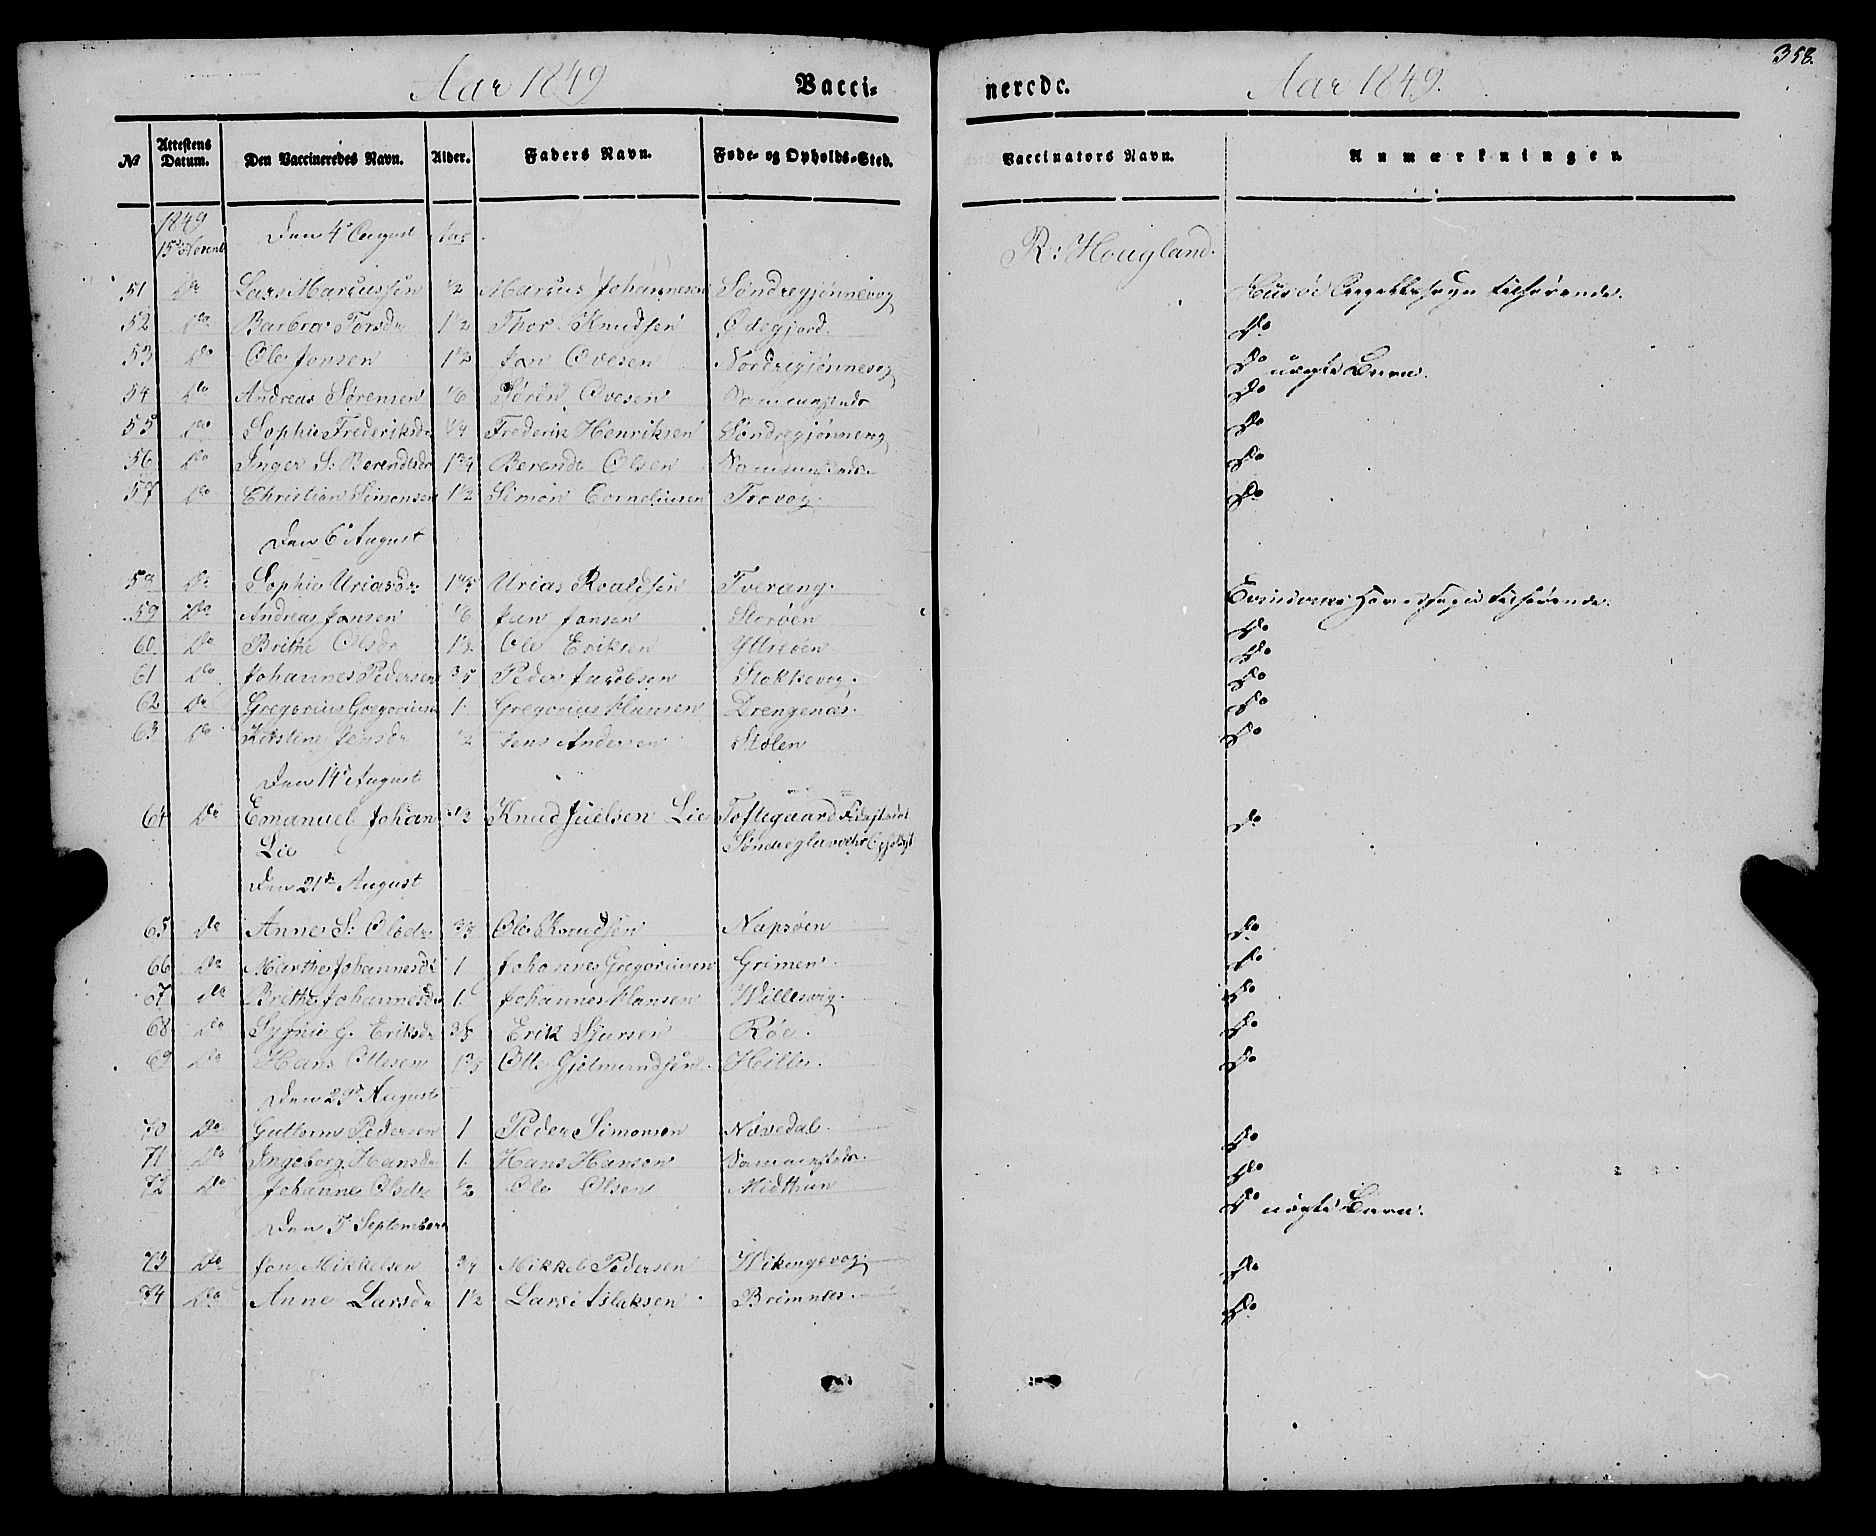 358.
Aar 1849 Vacci- nerede. Aar 1849.
No Attestens Datum. Den Vaccineredes Navn. Alder. Faders Navn. Føde- og Opholds-Sted. Vaccinators Navn. Anmærkninger.
1849
15de Novemb Den 4de August Aar R: Hougland.
51 Do Lars Marcussen 1/2 Marcus Johannesen Søndregjønnevog
52 Do Barbra Torsdr 1 1/2 Thor Knudsen Ødegjord. Do
53 Do Ole Jansen 1 1/2 Jan Ovesen Nordregjønnevog Do uægte Barn.
54 Do Andreas Sørensen 1/6 Søren Ovesen Sammensteds Do
55 Do Sophie Frederiksdr 1/4 Frederik Henriksen Søndregjønnevog Do
56 Do Inger S: Berendtsdr 1 3/4 Berendt Olsen Sammensteds Do
57 Do Christian Simonsen 1 1/2 Simon Corneliusen Trovog. Do
Den 6te August
58 Do Sophie Uriasdr Urias Roaldsen Tverang.
59 Do Andreas Jansen 1/6 Jan Jansen Storøen Do
60 Do Brithe Olsdr 1/2 Ole Eriksen Yttreøen Do
61 Do Johannes Pedersen 3/5 Peder Jacobsen Stokkevog. Do
62 Do Gregorius Gregoriusen 1. Gregorius Hansen Drengenæs. Do
63 Do Kirstine Jensdr 1/2 Jens Andersen Stolen Do
Den 14de August
64 Do Emanuel Johan Knud Juelsen Lie Toftegaard Fødested Do
Lie
Den 21de August
65 Do Anne S: Olsdr 3/5 Ole Knudsen Napsøen Do
66 Do Marthe Johannesdr 1 Johannes Gregoriusen Grimen. Do
67 Do Brithe Johannesdr 1. Johannes Hansen Willesvig. Do
68 Do G. Eriksdr 3/5 Erik Sjursen Røe. Do
69 Do Hans Ottesen Otte Hille. Do
Den 29de August
70 Do Guttorm Pedersen 1 Peder Simonsen Næsedal. Do
71 Do Ingeborg Hansdr 1. Hans Hansen Sammensteds Do
72 Do Johanne Olsdr 1/2 Ole Olsen Midthun Do uægte Barn.
Den 5te September
73 Do Jan Mikkelsen 3/4 Mikkel Pedersen Wikingevog. Do
74 Do Anne Larsdr 1 1/2 Lars Aslaksen Brimnes. Do